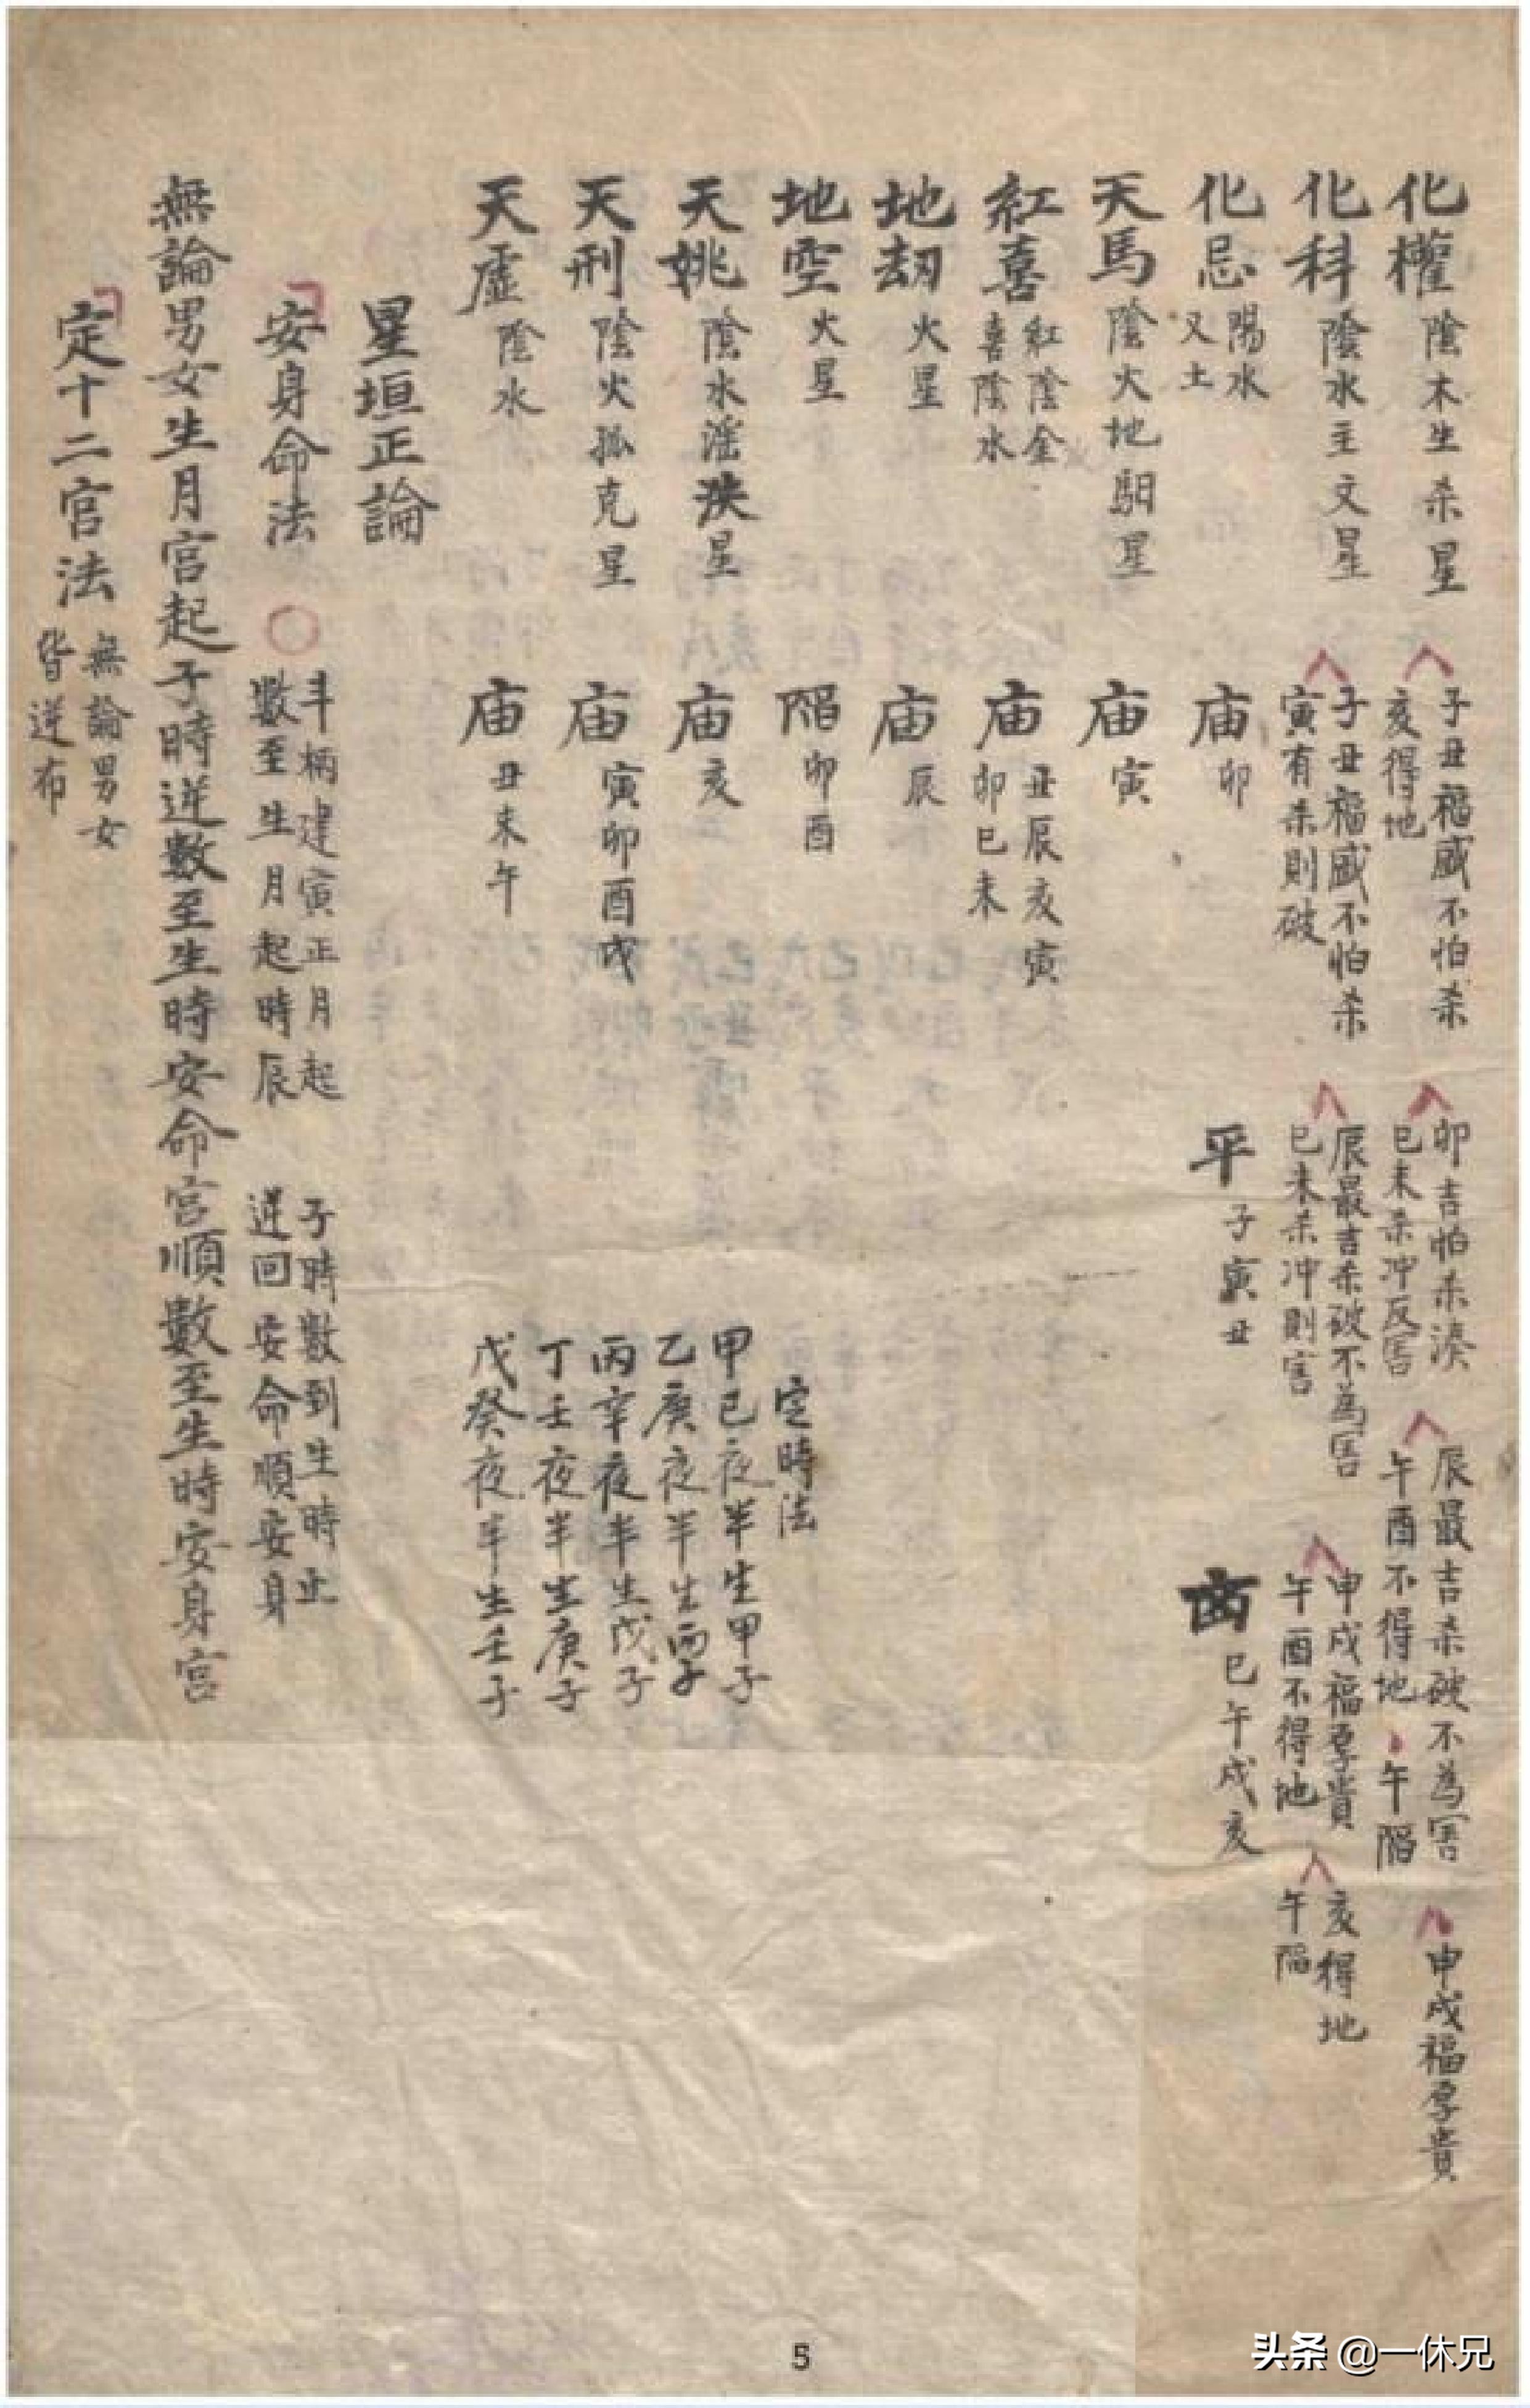 化權 陰木生杀星 子丑福盛不怕杀 亥得地 卯吉怕杀湊 巳未杀冲反害 辰最吉杀破不為害 午酉不得地 午陷 申戍福厚貴
化科 陰水主文星 子丑福盛不怕杀 寅有杀則破 辰最吉杀破不為害 巳未杀冲則害 申戍福厚貴 午酉不得地 亥得地 午陷
化忌 陽水 又土 庙 卯 平 子寅丑 凶 巳午戍亥
天馬 陰火地馹星 庙 寅
紅喜 紅陰金 喜陰水 庙 丑辰亥寅 卯巳未
地劫 火星 庙 辰
地空 火星 陷 卯酉
天姚 陰水滛泆星 庙 亥
天刑 陰火孤克星 庙 寅卯酉戍
天虛 陰水 庙 丑未午
定時法
甲己夜半生甲子
乙庚夜半生丙子
丙辛夜半生戊子
丁壬夜半生庚子
戊癸夜半生壬子
星垣正論
安身命法 斗柄建寅正月起 數至生月起時辰 子時數到生時止 逆回安命順安身
無論男女生月宫起子時逆數至生時安命宫順數至生時安身宫
定十二宫法 無論男女 皆逆布
5
头条 @一休兄